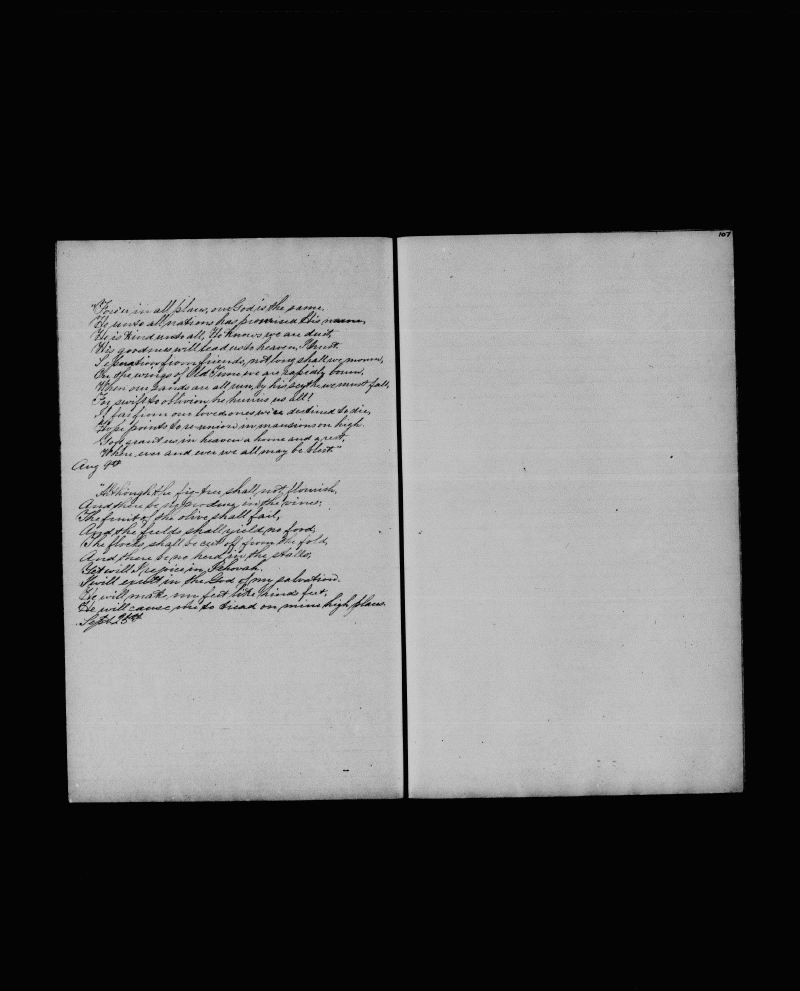 107
"For in all places, our God is the same,
He unto all nations has promised His name,
He is kind unto all, He knows we are dust,
His goodness will lead us to heaven, I trust.
Separation from friends, not long shall we mourn,
On the wings of Old Time we are rapidly bourn,
When our sands are all run, by his scythe we must fall,
For swift to oblivion he hurries us all!
If far from our loved ones we're destined to die,
Hope points to re-union in mansions on high.
God grant us in heaven a home and a rest,
Where ever and ever we all may be blest."
Aug 9th
"Although the fig-tree shall not flourish,
And there be no produce in the vines;
The fruit of the olive shall fail,
And the fields shall yield no food;
The flocks shall be cut off from the fold,
And there be no herd in the stalls;
Yet will I rejoice in Jehovah.
I will exult in the God of my salvation.
He will make my feet like hinds feet,
He will cause me to tread on mine high places.
Sept 25th